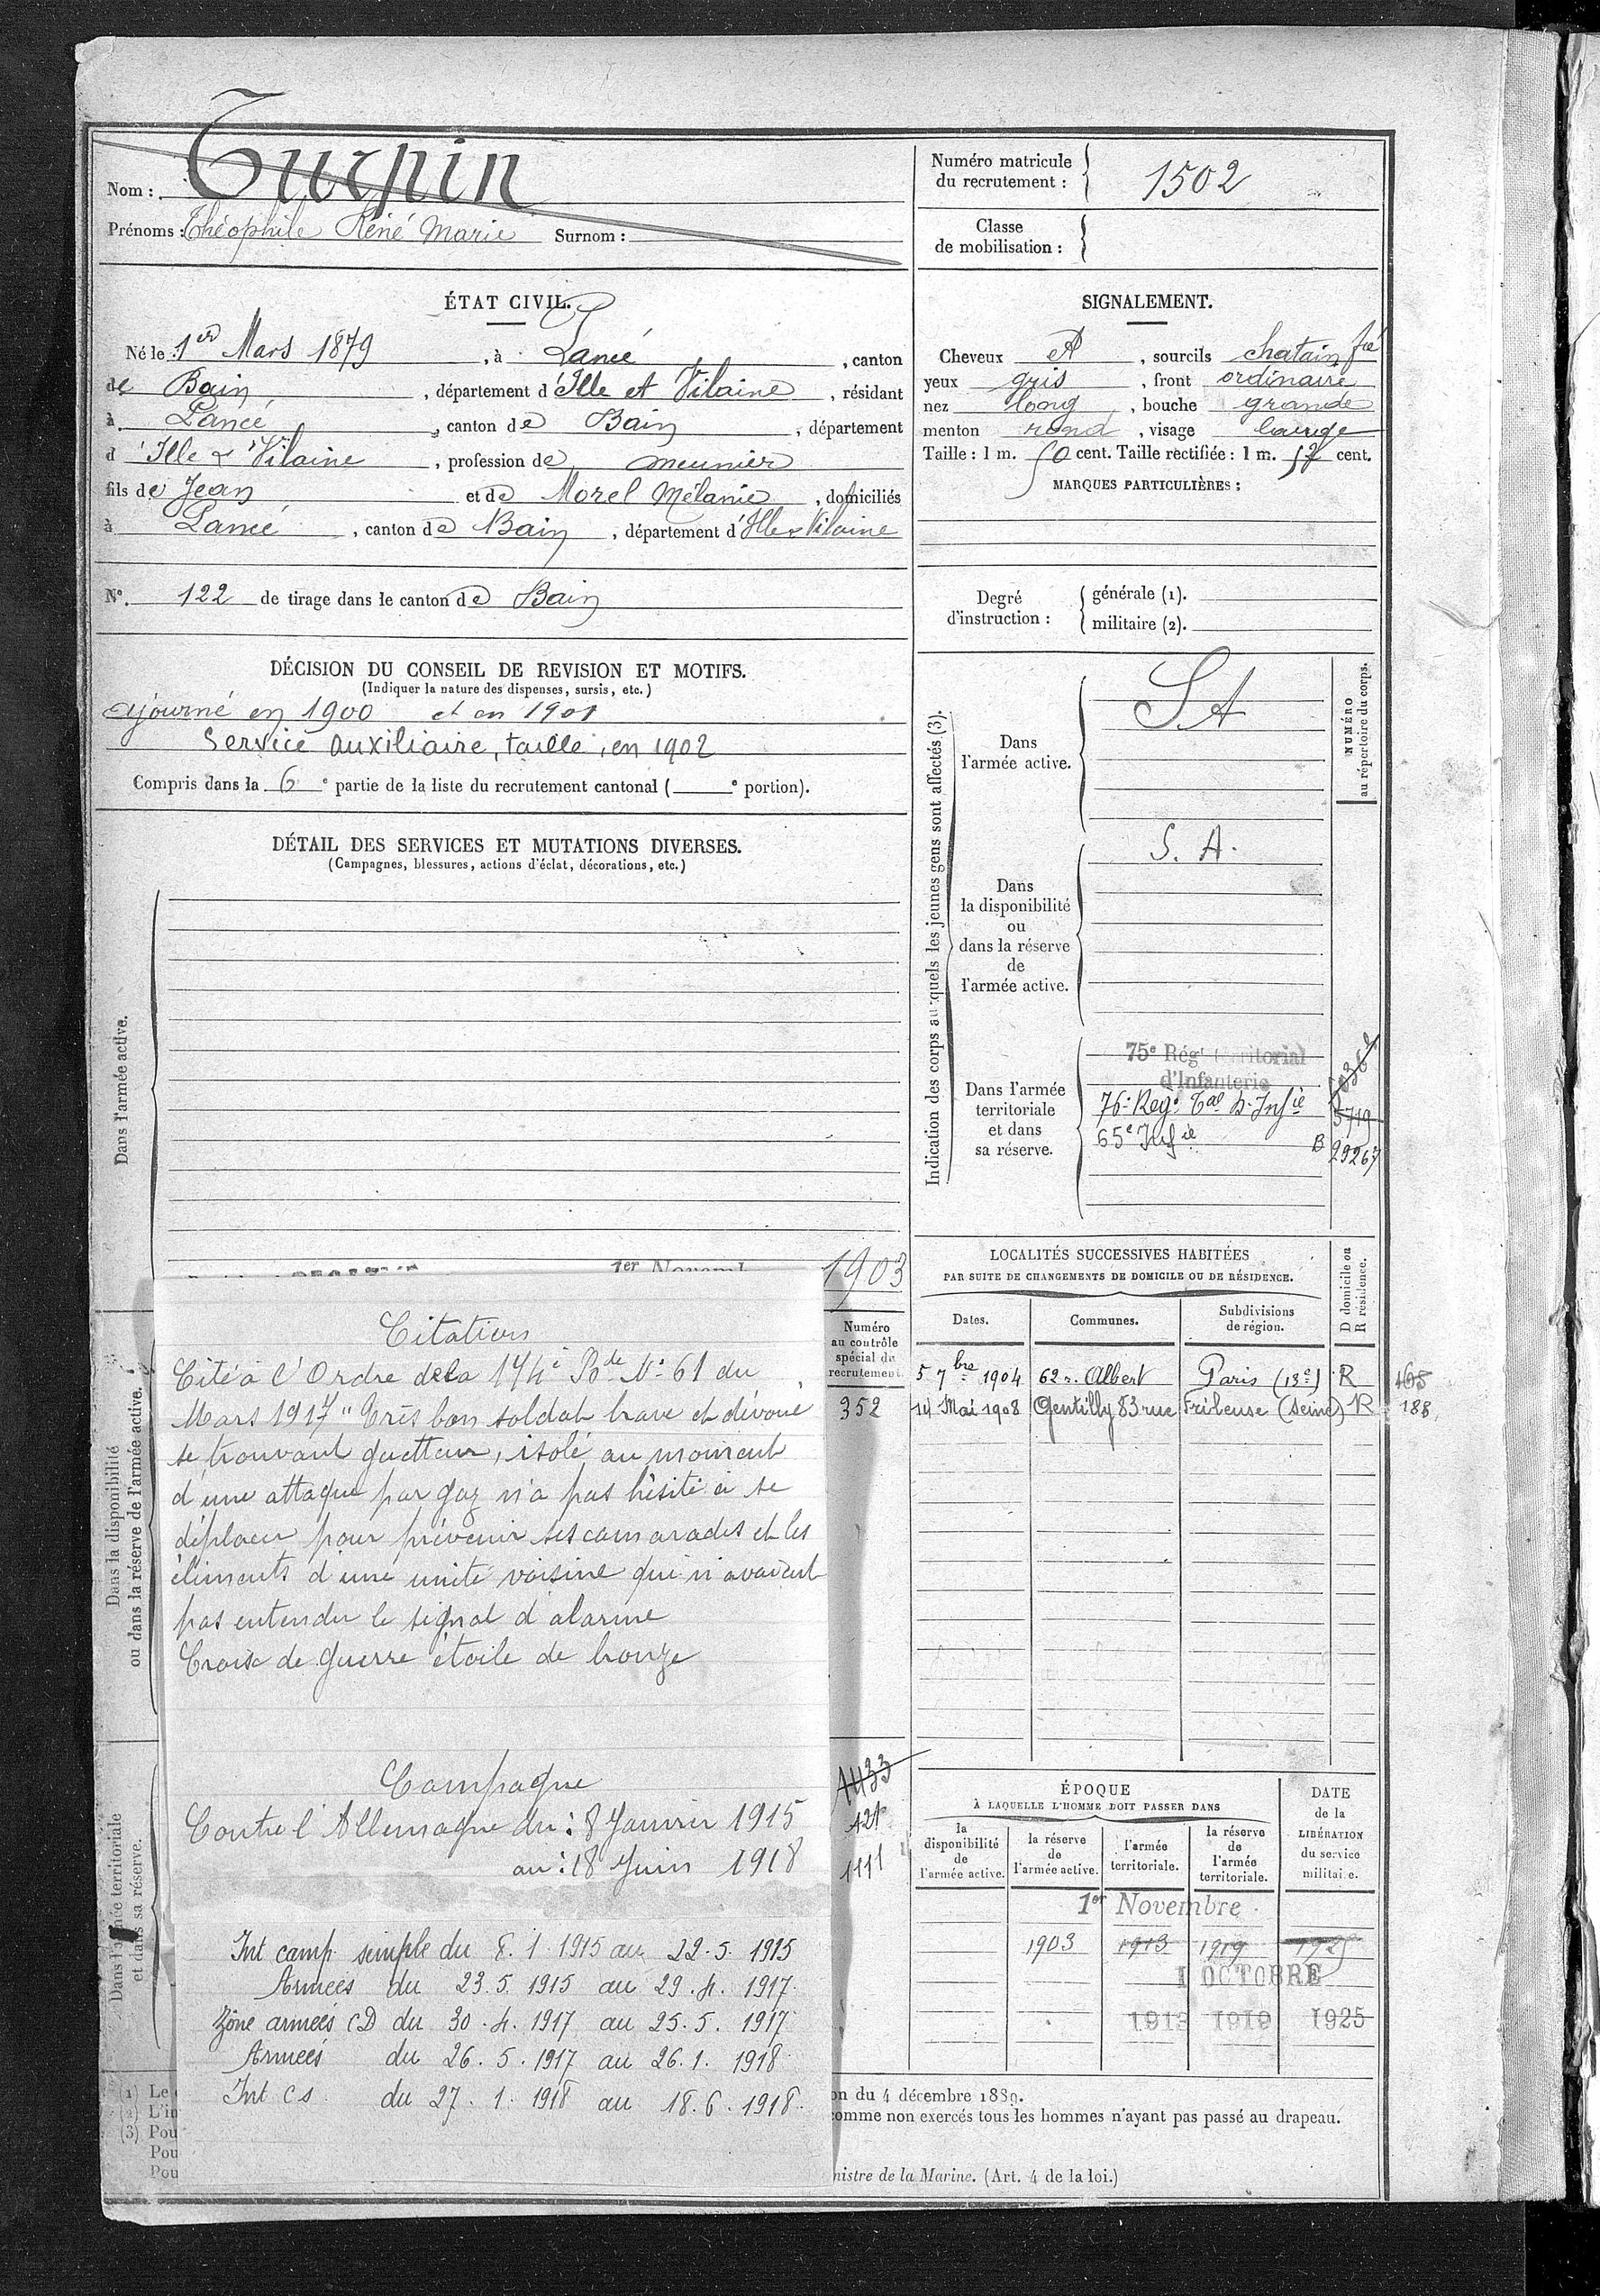 Nom : Turpin
Prénoms : Théophile René Marie Surnom :
Numéro matricule
du recrutement : 1502
Classe
de mobilisation :
ÉTAT CIVIL.
Né le 1er Mars 1879, à Lancé, canton
de Bain, département d'Ille et Vilaine, résidant
à Lancé, canton de Bain, département
d'Ille & Vilaine, profession de meunier
fils de Jean et de Morel Mélanie, domiciliés
à Lancé, canton de Bain, département d'Ille & Vilaine
N° 122 de tirage dans le canton de Bain
SIGNALEMENT.
Cheveux et, sourcils chatain fcé
yeux gris, front ordinaire
nez long, bouche grande
menton rond, visage large
Taille : 1 m. 50 cent. Taille rectifiée : 1 m. 52 cent.
MARQUES PARTICULIÈRES :
Degré
d'instruction :
générale (1).
militaire (2).
DÉCISION DU CONSEIL DE REVISION ET MOTIFS.
(Indiquer la nature des dispenses, sursis, etc.)
ajourné en 1900 et en 1901
Service auxiliaire, taille, en 1902
Compris dans la 6e partie de la liste du recrutement cantonal (e portion).
DÉTAIL DES SERVICES ET MUTATIONS DIVERSES.
(Campagnes, blessures, actions d'éclat, décorations, etc.)
Dans l'armée active.
1er
1903
Dans la disponibilité
ou dans la réserve de l'armée active.
Dans l'armée territoriale
et dans sa réserve.
Numéro
au contrôle
spécial du
recrutement
352
1433
421
1111
Citation
Cité à l'Ordre dela 174e Bde N° 61 du
Mars 1917 "Très bon soldat brave et dévoué
se trouvant guetteur, isolé au moment
d'une attaque par gaz n'a pas hésité à se
déplacer pour prévenir ses camarades et les
éléments d'une unité voisine qui n'avaient
pas entendu le signal d'alarme
Croix de guerre étoile de bronze
Campagne
Contre l'Allemagne du : 8 Janvier 1915
au : 18 Juin 1918
Int camp. simple du 8.1.1915 au 22.5.1915
Armées du 23.5.1915 au 29.4.1917
Zône armées CD du 30.4.1917 au 25.5.1917
Armées du 26.5.1917 au 26.1.1918
Int CS. du 27.1.1918 au 18.6.1918
Indication des corps auxquels les jeunes gens sont affectés (3).
NUMÉRO
au répertoire du corps.
Dans
l'armée active.
SA
Dans
la disponibilité
ou
dans la réserve
de
l'armée active.
S.A.
Dans l'armée
territoriale
et dans
sa réserve.
75e Régt Territorial
d'Infanterie
76e Regt Tal d'Infie 5719
65e Infie B 29267
LOCALITÉS SUCCESSIVES HABITÉES
PAR SUITE DE CHANGEMENTS DE DOMICILE OU DE RÉSIDENCE.
D domicile ou
R résidence.
Dates. Communes. Subdivisions
de région.
5 7bre 1904 62 r. Albert Paris (13e) R 165
14 Mai 1908 Gentilly 83 rue Frileuse (Seine) R 188
ÉPOQUE
À LAQUELLE L'HOMME DOIT PASSER DANS
la
disponibilité
de
l'armée active.
la réserve
de
l'armée active.
l'armée
territoriale.
la réserve
de
l'armée
territoriale.
DATE
de la
LIBÉRATION
du service
militaire.
1er Novembre
1903 1913 1919
1 OCTOBRE
1913 1919 1925
(1) Le
(2) L'in
(3) Pou
Pou
Pou
on du 4 décembre 1889.
comme non exercés tous les hommes n'ayant pas passé au drapeau.
nistre de la Marine. (Art. 4 de la loi.)